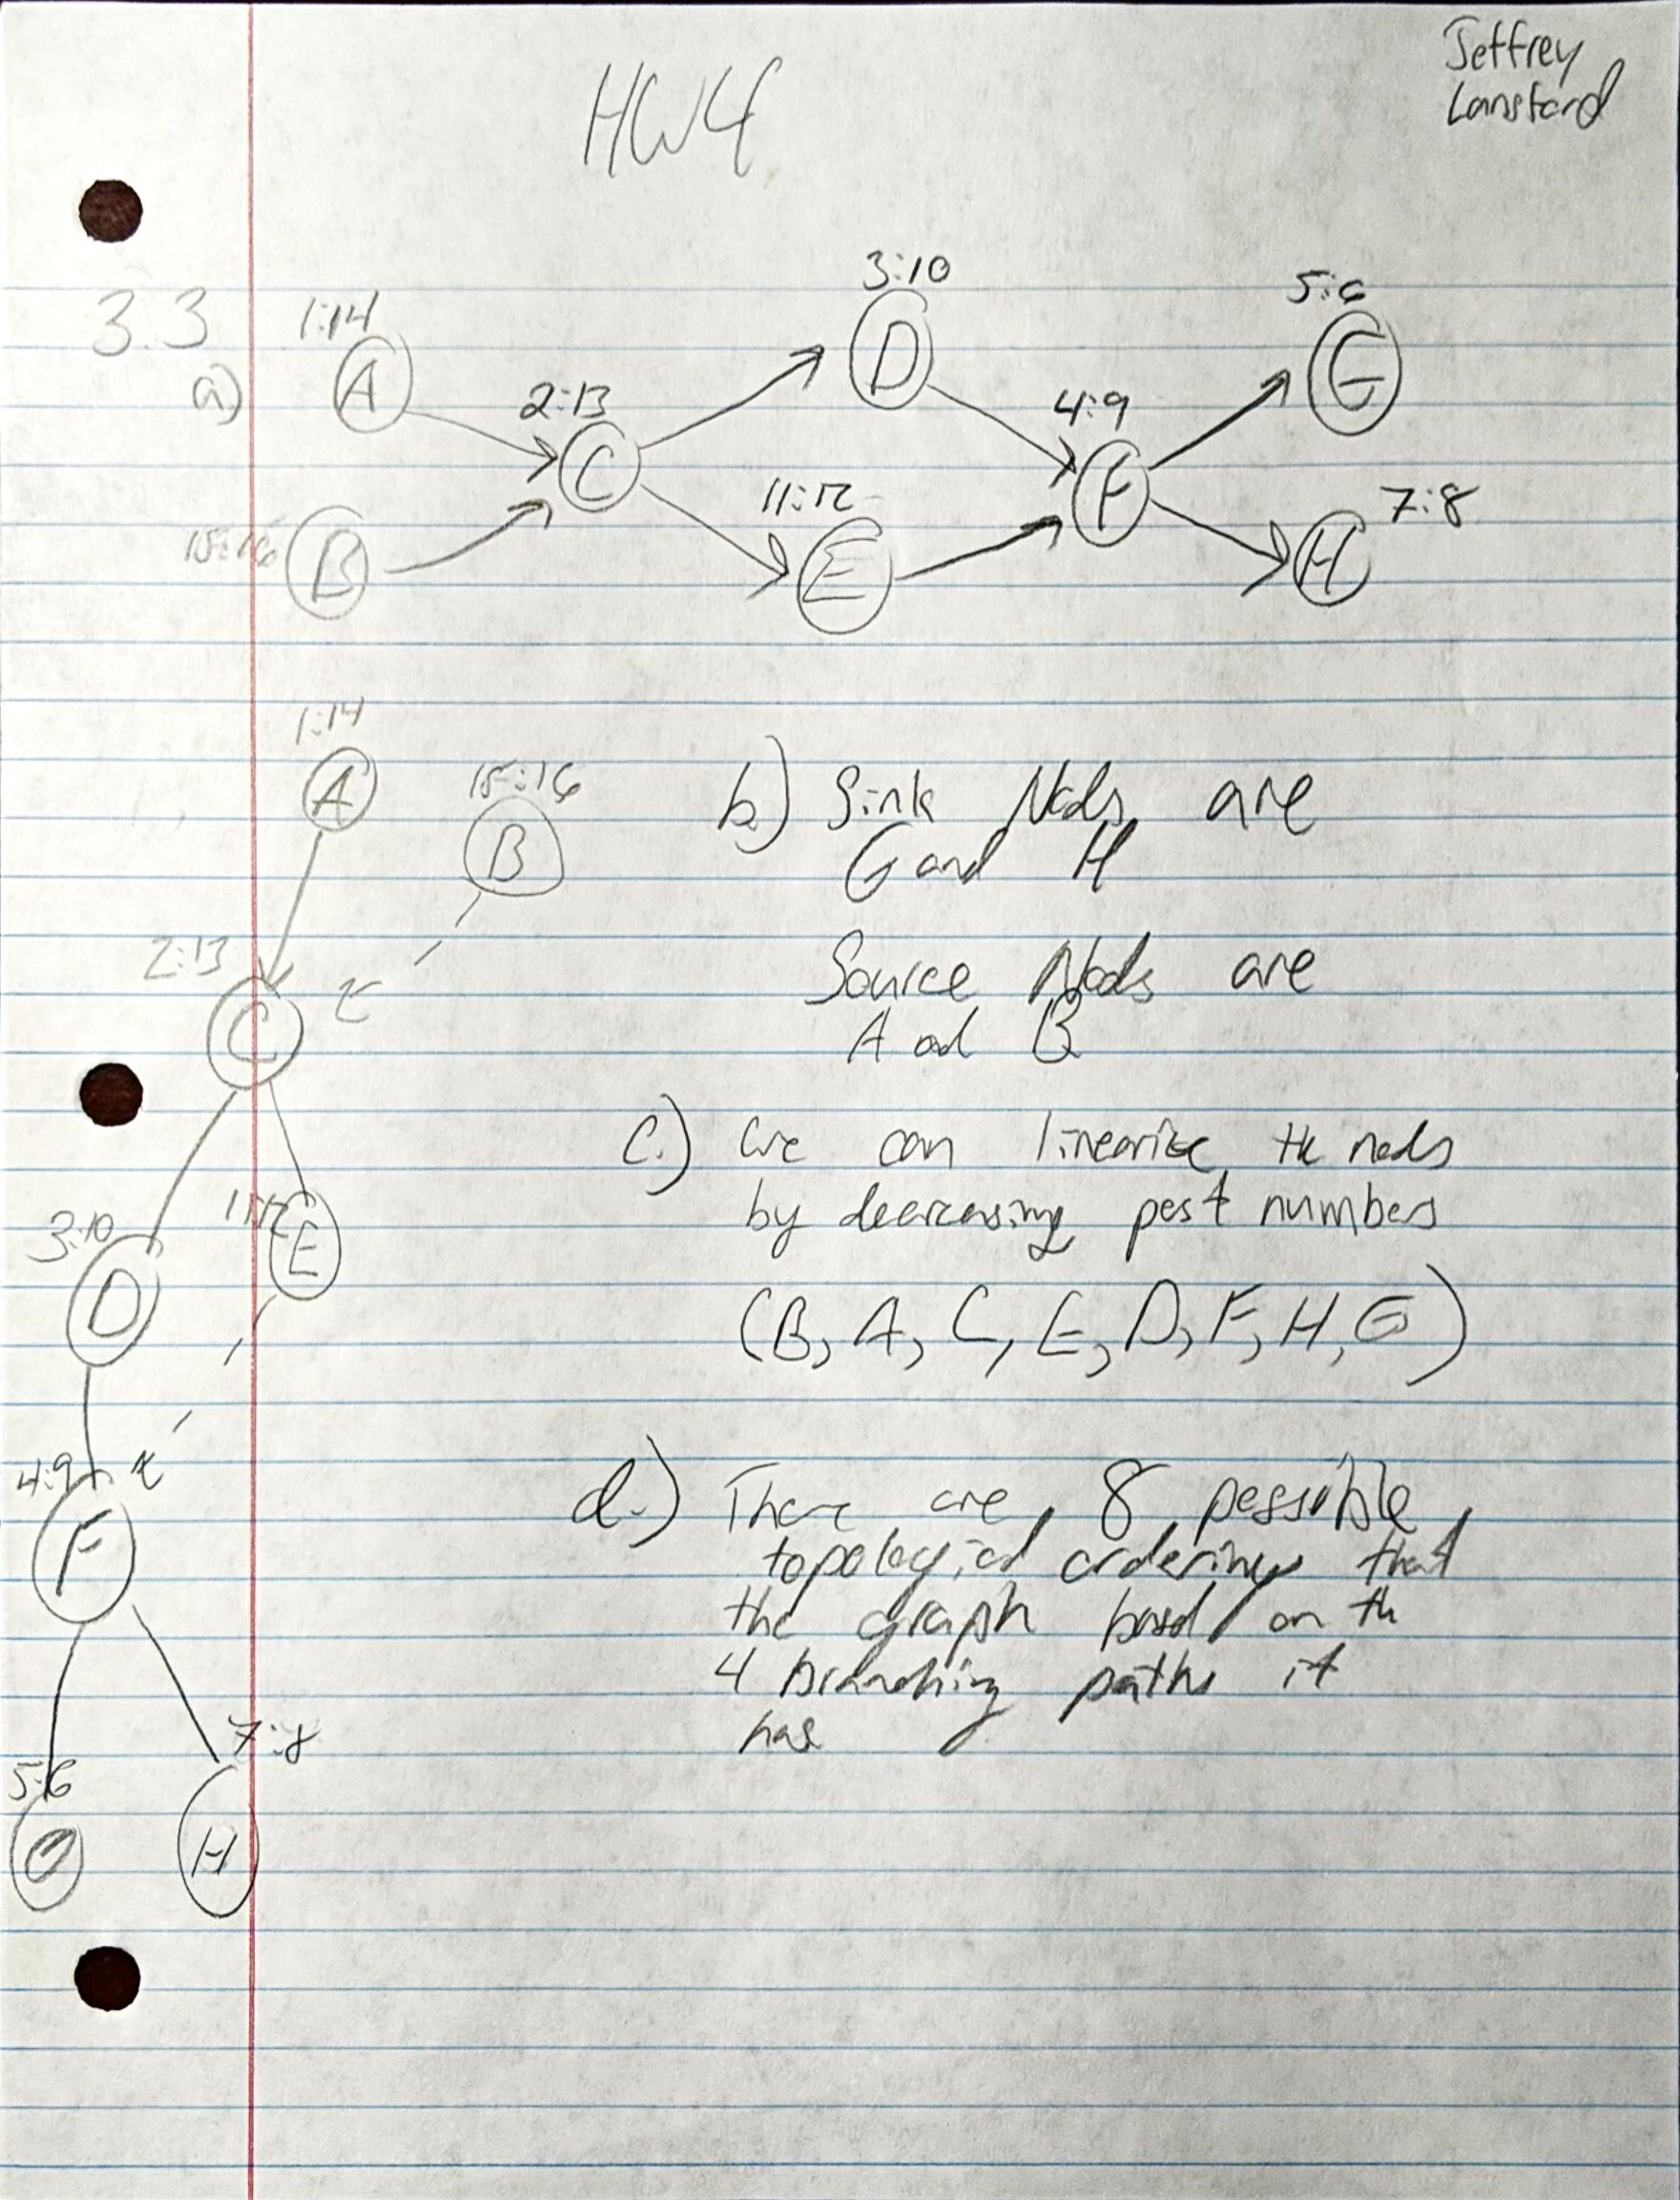 Jeffrey
Lansford
HW4
3.3
a)
1:14
A
2:13
C
3:10
D
4:9
F
5:6
G
15:16
B
11:12
E
7:8
H
1:14
A
15:16
B
2:13
C
3:10
D
11:12
E
4:9
F
5:6
G
7:8
H
b) Sink Nods are
G and H
Source Nods are
A ad B
c.) We can linearize the nods
by decreasing post numbers
(B, A, C, E, D, F, H, G)
d.) There are 8 possible
topological orderings that
the graph based on th
4 branching paths it
has